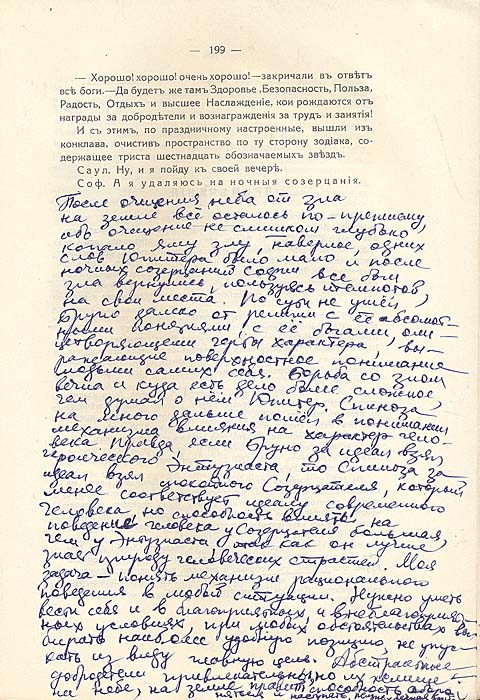 — 199 —
— Хорошо! хорошо! очень хорошо!—закричали въ отвѣтъ
всѣ боги.—Да будетъ же тамъ Здоровье, Безопасность, Польза,
Радость, Отдыхъ и высшее Наслажденіе, кои рождаются отъ
награды за добродѣтели и вознагражденія за трудъ и занятія!
И съ этимъ, по праздничному настроенные, вышли изъ
конклава, очистивъ пространство по ту сторону зодіака, со-
держащее триста шестнадцать обозначаемыхъ звѣздъ.
Саул. Ну, и я пойду къ своей вечерѣ.
Соф. А я удаляюсь на ночныя созерцанія.
После очищения неба от зла
на земле всё осталось по-прежнему,
очищение не слишком глубоко
копало яму злу, наверное, одних
слов Юпитера было мало и после
ночных созерцаний Софии все боги
зла вернулись, пользуясь темнотой,
на свои места. По сути не ушёл
Бруно далеко от религии с её абсолют-
ными понятиями, с её богами, оли-
цетворяющими черты характера, вы-
ражающие поверхностное понимание
людьми самих себя. Борьба со злом
вечна и куда есть дело более сложное,
чем думал о нём Юпитер. Спиноза
на много дальше пошёл в понимании
механизма влияния на характер чело-
века. Правда, если Бруно за идеал взял
героического Энтузиаста, то Спиноза за
идеал взял Созерцателя, который
менее соответствует идеалу современного
человека, но способность влиять на
поведение человека у Созерцателя большая,
чем у Энтузиаста так как он лучше
знал природу человеческих страстей. Моя
задача — понять механизм рационального
поведения в любой ситуации. Нужно уметь
вести себя и в благоприятных и в неблагоприят-
ных условиях, при любых обстоятельствах вы-
бирать наиболее удобную позицию, не упус-
кать из виду главную цель. Абстрактные
добродетели привлекательны, но их
на небе, на земле правит способность